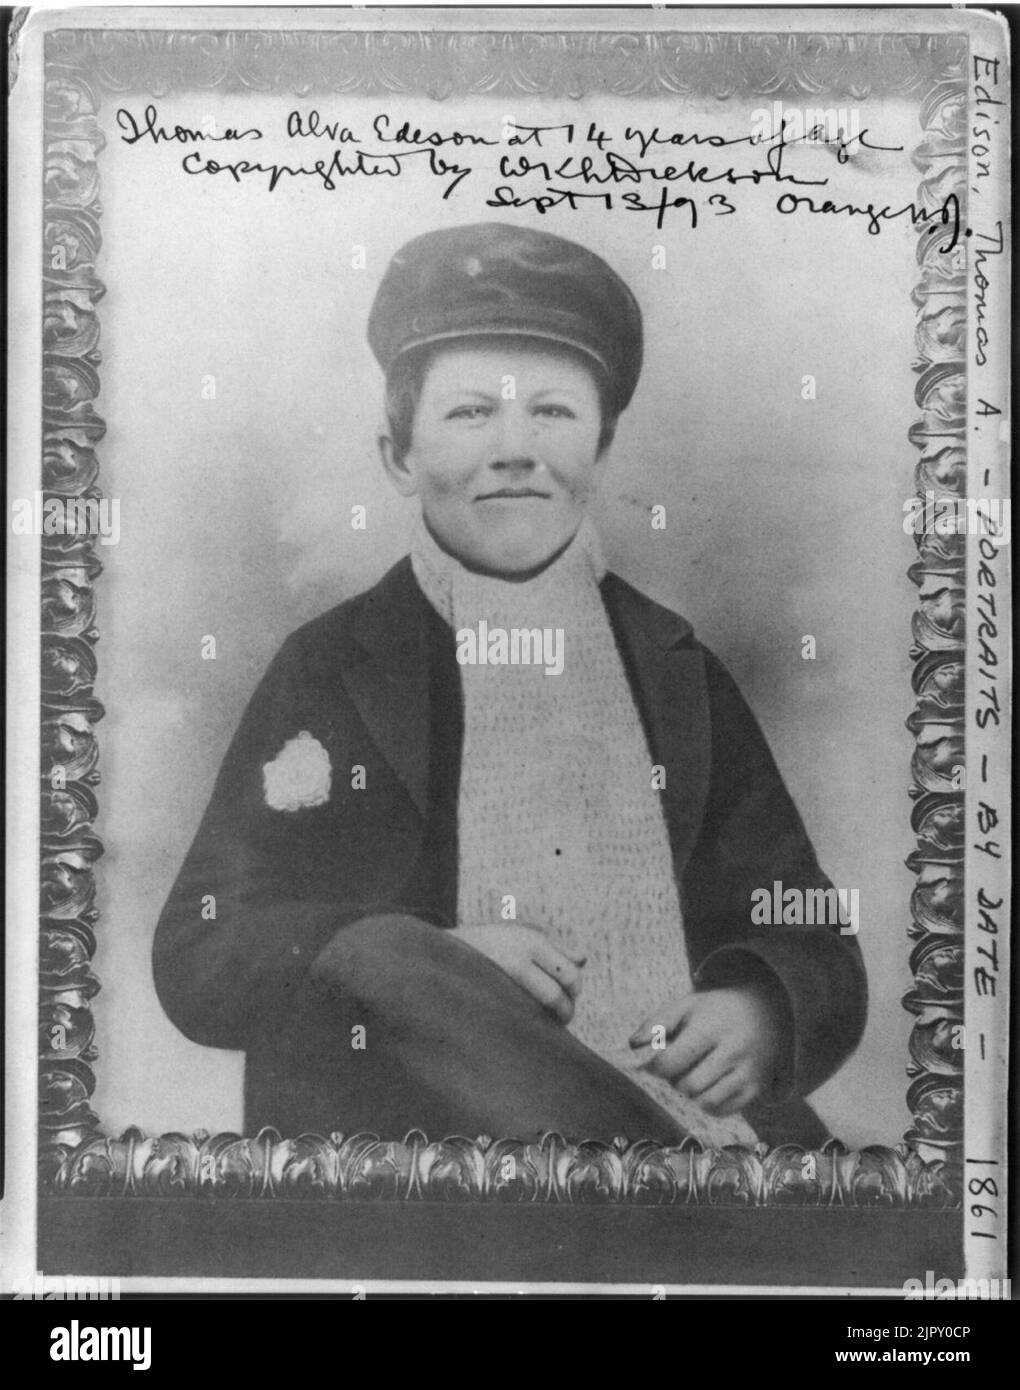 Thomas Alva Edeson at 14 years of age
Copyrighted by WKL Dickson
Sept 13/93 Orange N.J.
Edison, Thomas A. - PORTRAITS - BY DATE - 1861
alamy
alamy
a
a
a
a
a
a
a
a
a
a
a
a
a
a
alamy
alamy
alamy
alamy
alamy
Image ID: 2JPY0CP
www.alamy.com